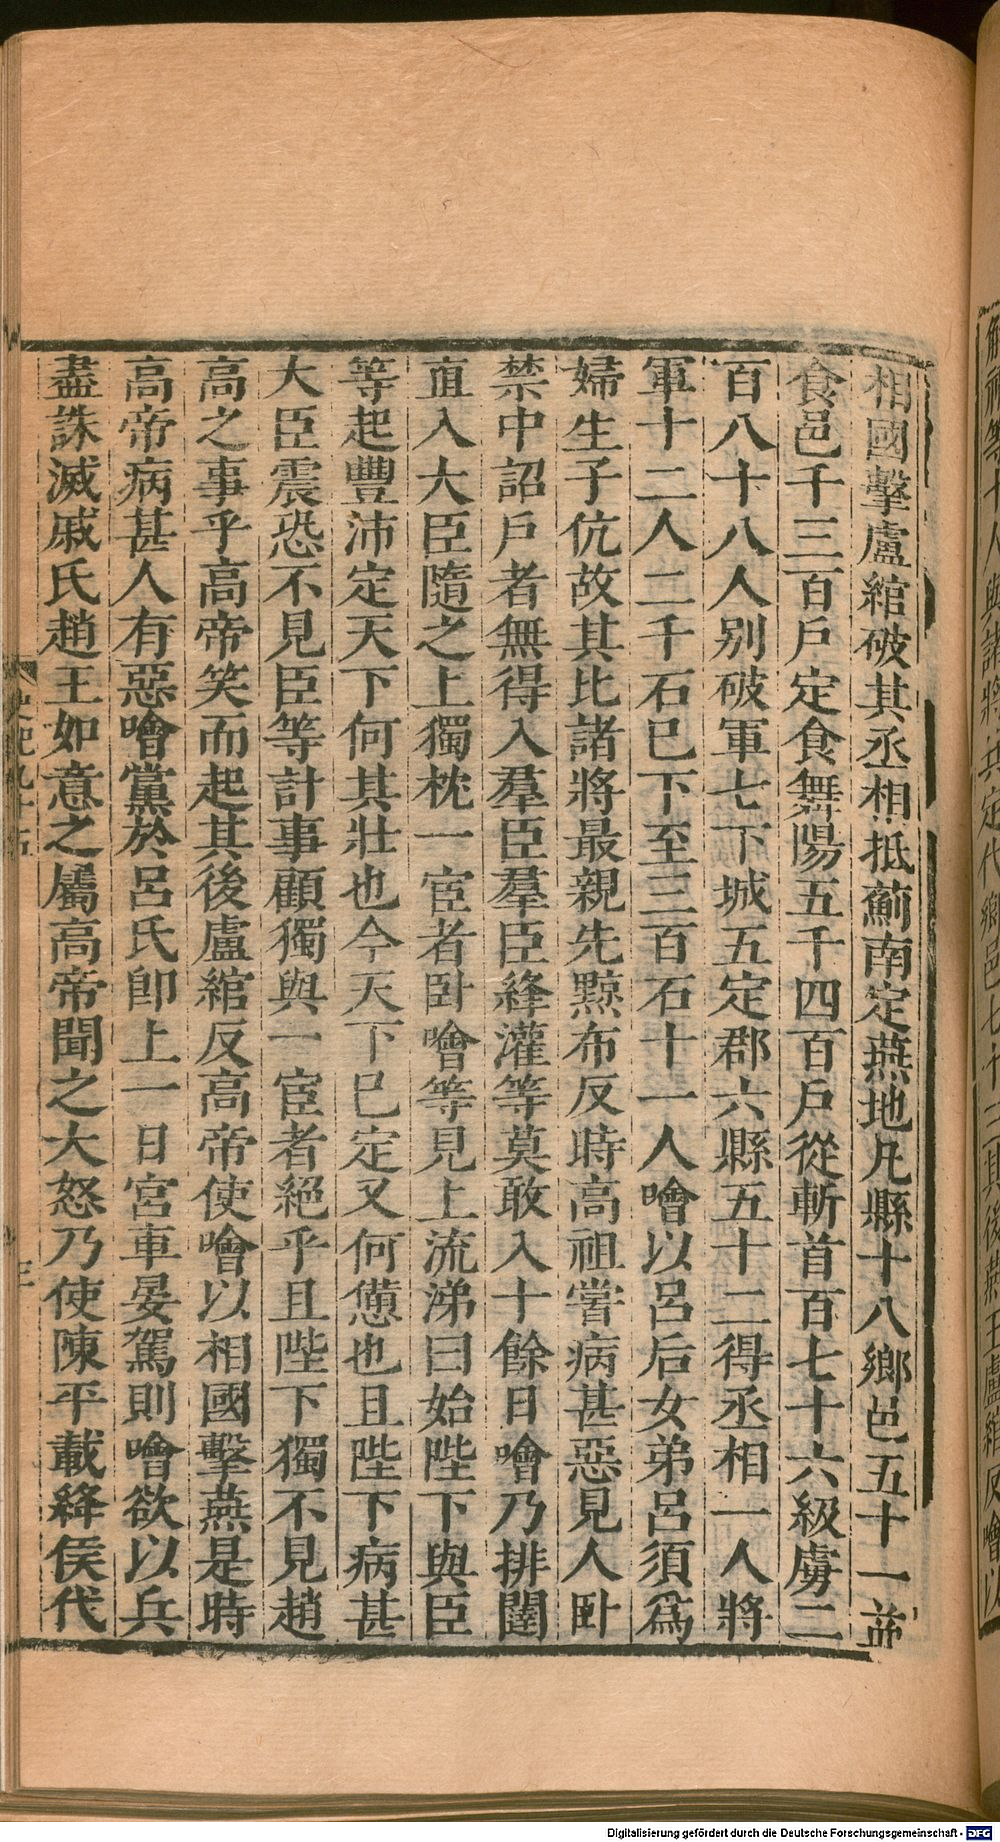 相國擊盧綰破其丞相抵薊南定燕地凡縣十八鄉邑五十一益
食邑千三百戶定食舞陽五千四百戶從斬首百七十六級虜二
百八十八人别破軍七下城五定郡六縣五十二得丞相一人將
軍十二人二千石已下至三百石十一人噲以呂后女弟呂須爲
婦生子伉故其比諸將最親先黥布反時高祖嘗病甚惡見人卧
禁中詔戶者無得入羣臣羣臣絳灌等莫敢入十餘日噲乃排闥
直入大臣隨之上獨枕一宦者卧噲等見上流涕曰始陛下與臣
等起豐沛定天下何其壯也今天下已定又何憊也且陛下病甚
大臣震恐不見臣等計事顧獨與一宦者絕乎且陛下獨不見趙
高之事乎高帝笑而起其後盧綰反高帝使噲以相國擊燕是時
高帝病甚人有惡噲黨於呂氏卽上一日宮車晏駕則噲欲以兵
盡誅滅戚氏趙王如意之屬高帝聞之大怒乃使陳平載絳侯代
史記九十五
三
解福等十人與諸將共定代鄉邑七十三其後燕王盧綰反噲以
Digitalisierung gefördert durch die Deutsche Forschungsgemeinschaft - DFG